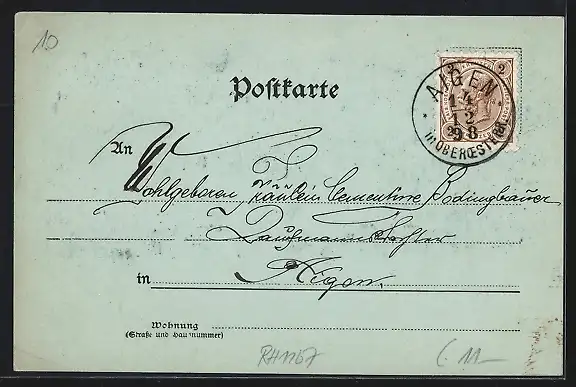 10
Postkarte
2
AIGEN
14
12
98
in OBERŒSTERR
An Wohlgeboren Fräulein Clementine Bodingbauer
Kaufmannstochter
in Aigen.
Wohnung
(Straße und Hausnummer)
RH1167